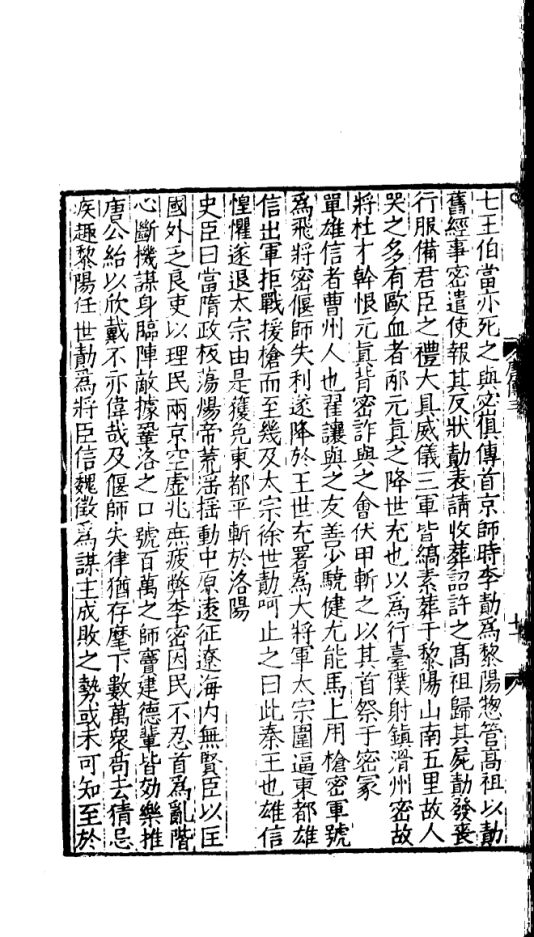 七王伯當亦死之與密俱傳首京師時李勣爲黎陽惣管髙祖以勣
舊經事密遣使報其反狀勣表請收葬詔許之髙祖歸其屍勣發喪
行服備君臣之禮大具威儀三軍皆縞素葬于黎陽山南五里故人
哭之多有歐血者邴元眞之降世充也以爲行臺僕射鎮滑州密故
將杜才幹恨元眞背密詐與之會伏甲斬之以其首祭于密冢
單雄信者曹州人也翟讓與之友善少驍健尤能馬上用槍密軍號
爲飛將密偃師失利遂降於王世充署爲大將軍太宗圍逼東都雄
信出軍拒戰援槍而至幾及太宗徐世勣呵止之曰此秦王也雄信
惶懼遂退太宗由是獲免東都平斬於洛陽
史臣曰當隋政板蕩煬帝荒淫搖動中原遠征遼海内無賢臣以匡
國外乏良吏以理民兩京空虛兆庶疲弊李密因民不忍首爲亂階
心斷機謀身臨陣敵據鞏洛之口號百萬之師竇建德輩皆効樂推
唐公紿以欣戴不亦偉哉及偃師失律猶存麾下數萬衆苟去猜忌
疾趣黎陽任世勣爲將臣信魏徵爲謀主成敗之勢或未可知至於